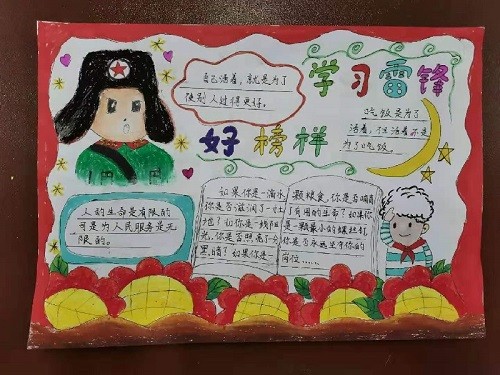 学习雷锋
好榜样
自己活着,就是为了
使别人过得更好。
吃饭是为了
活着,但活着不是
为了吃饭。
人的生命是有限的
可是为人民服务是无
限的。
如果你是一滴水
你是否滋润了一寸土
地?如果你是一线阳
光,你是否照亮了一分
黑暗?如果你是一
颗粮食,你是否哺育
了有用的生命?如果你
是一颗最小的螺丝钉,
你是否永远坚守你的
岗位……